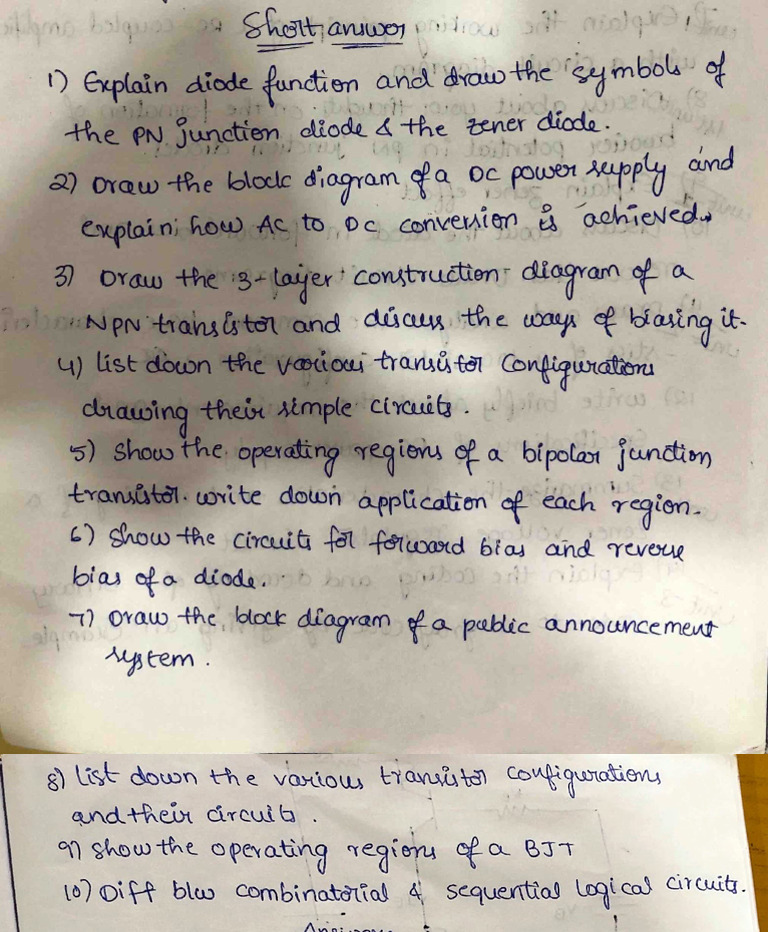 Short answer
1) Explain diode function and draw the symbols of
the PN junction diode & the zener diode.
2) Draw the block diagram of a DC power supply and
explain how AC to DC conversion is achieved.
3) Draw the 3-layer construction diagram of a
NPN transistor and discuss the ways of biasing it.
4) list down the various transistor configurations
drawing their simple circuits.
5) show the operating regions of a bipolar junction
transistor. write down application of each region.
6) show the circuits for forward bias and reverse
bias of a diode.
7) Draw the block diagram of a public announcement
system.
8) list down the various transistor configurations
and their circuits.
9) show the operating regions of a BJT
10) Diff b/w combinatorial & sequential logical circuits.